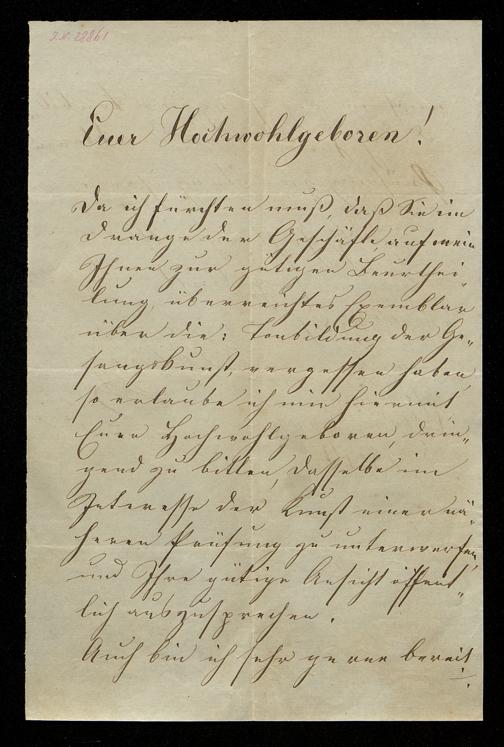 I.N. 28861
Euer Hochwohlgeboren!
Da ich fürchten muß, daß Sie im
Drange der Geschäfte auf mein
Ihnen zur gütigen Beurthei-
lung überreichtes Exemplar
über die: Tonbildung der Ge-
sangskunst, vergessen haben,
so erlaube ich mir hiermit
Euer Hochwohlgeboren, drin-
gend zu bitten, dasselbe im
Interesse der Kunst einer nä-
heren Prüfung zu unterwerfen,
und Ihre gütige Ansicht öffent-
lich auszusprechen.
Auch bin ich sehr gerne bereit